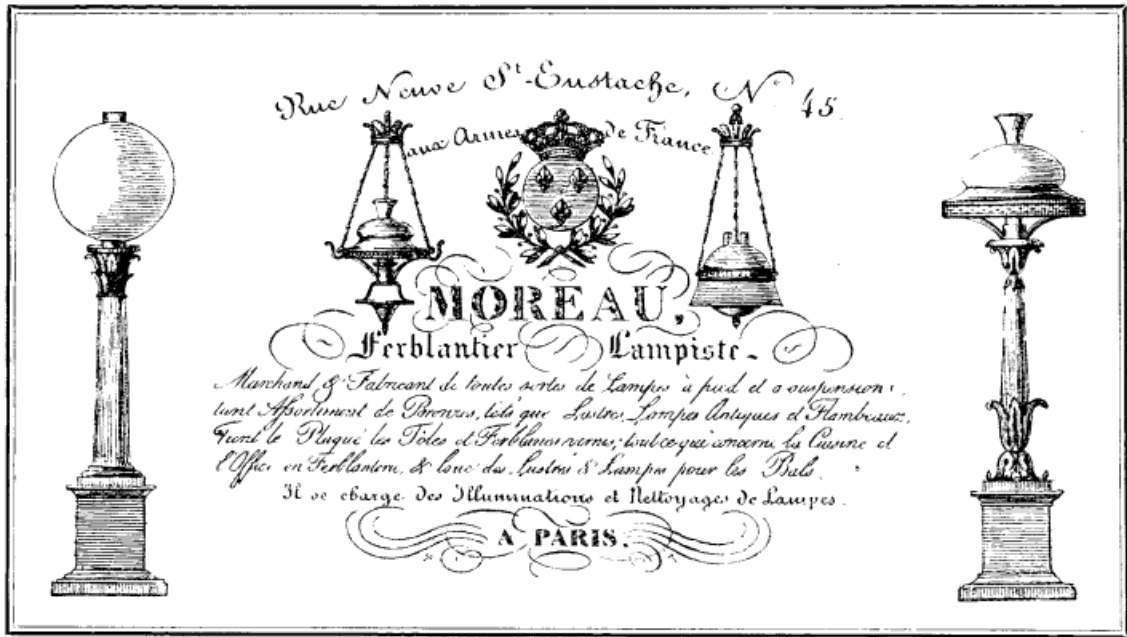 Rue Neuve St-Eustache, No 45
aux Armes de France
MOREAU,
Ferblantier Lampiste.
Marchand & Fabricant de toutes sortes de Lampes à pied et a suspension,
tient Assortiment de Bronzes, tels que Lustres, Lampes Antiques et Flambeaux,
Tient le Plaqué les Tôles et Ferblancs vernis, tout ce qui concerne la Cuisine et
l'Office en Ferblanterie, & loue des Lustres & Lampes pour les Bals.
Il se charge des Illuminations et Nettoyages de Lampes.
A PARIS.